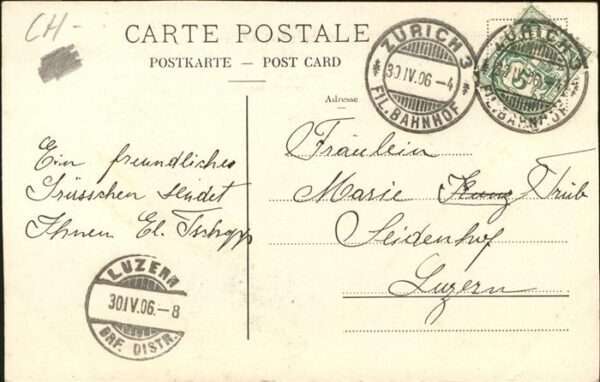 CH-
CARTE POSTALE
POSTKARTE — POST CARD
ZÜRICH 3
30 IV. 06 - 4
FIL. BAHNHOF
ZÜRICH 3
FIL. BAHNHOF
Adresse
Fräulein
Marie Kunz Trüb
Seidenhof
Luzern
Ein freundliches
Grüsschen sendet
Ihnen El. Tschopp
LUZERN
30 IV. 06. - 8
BRF. DISTR.